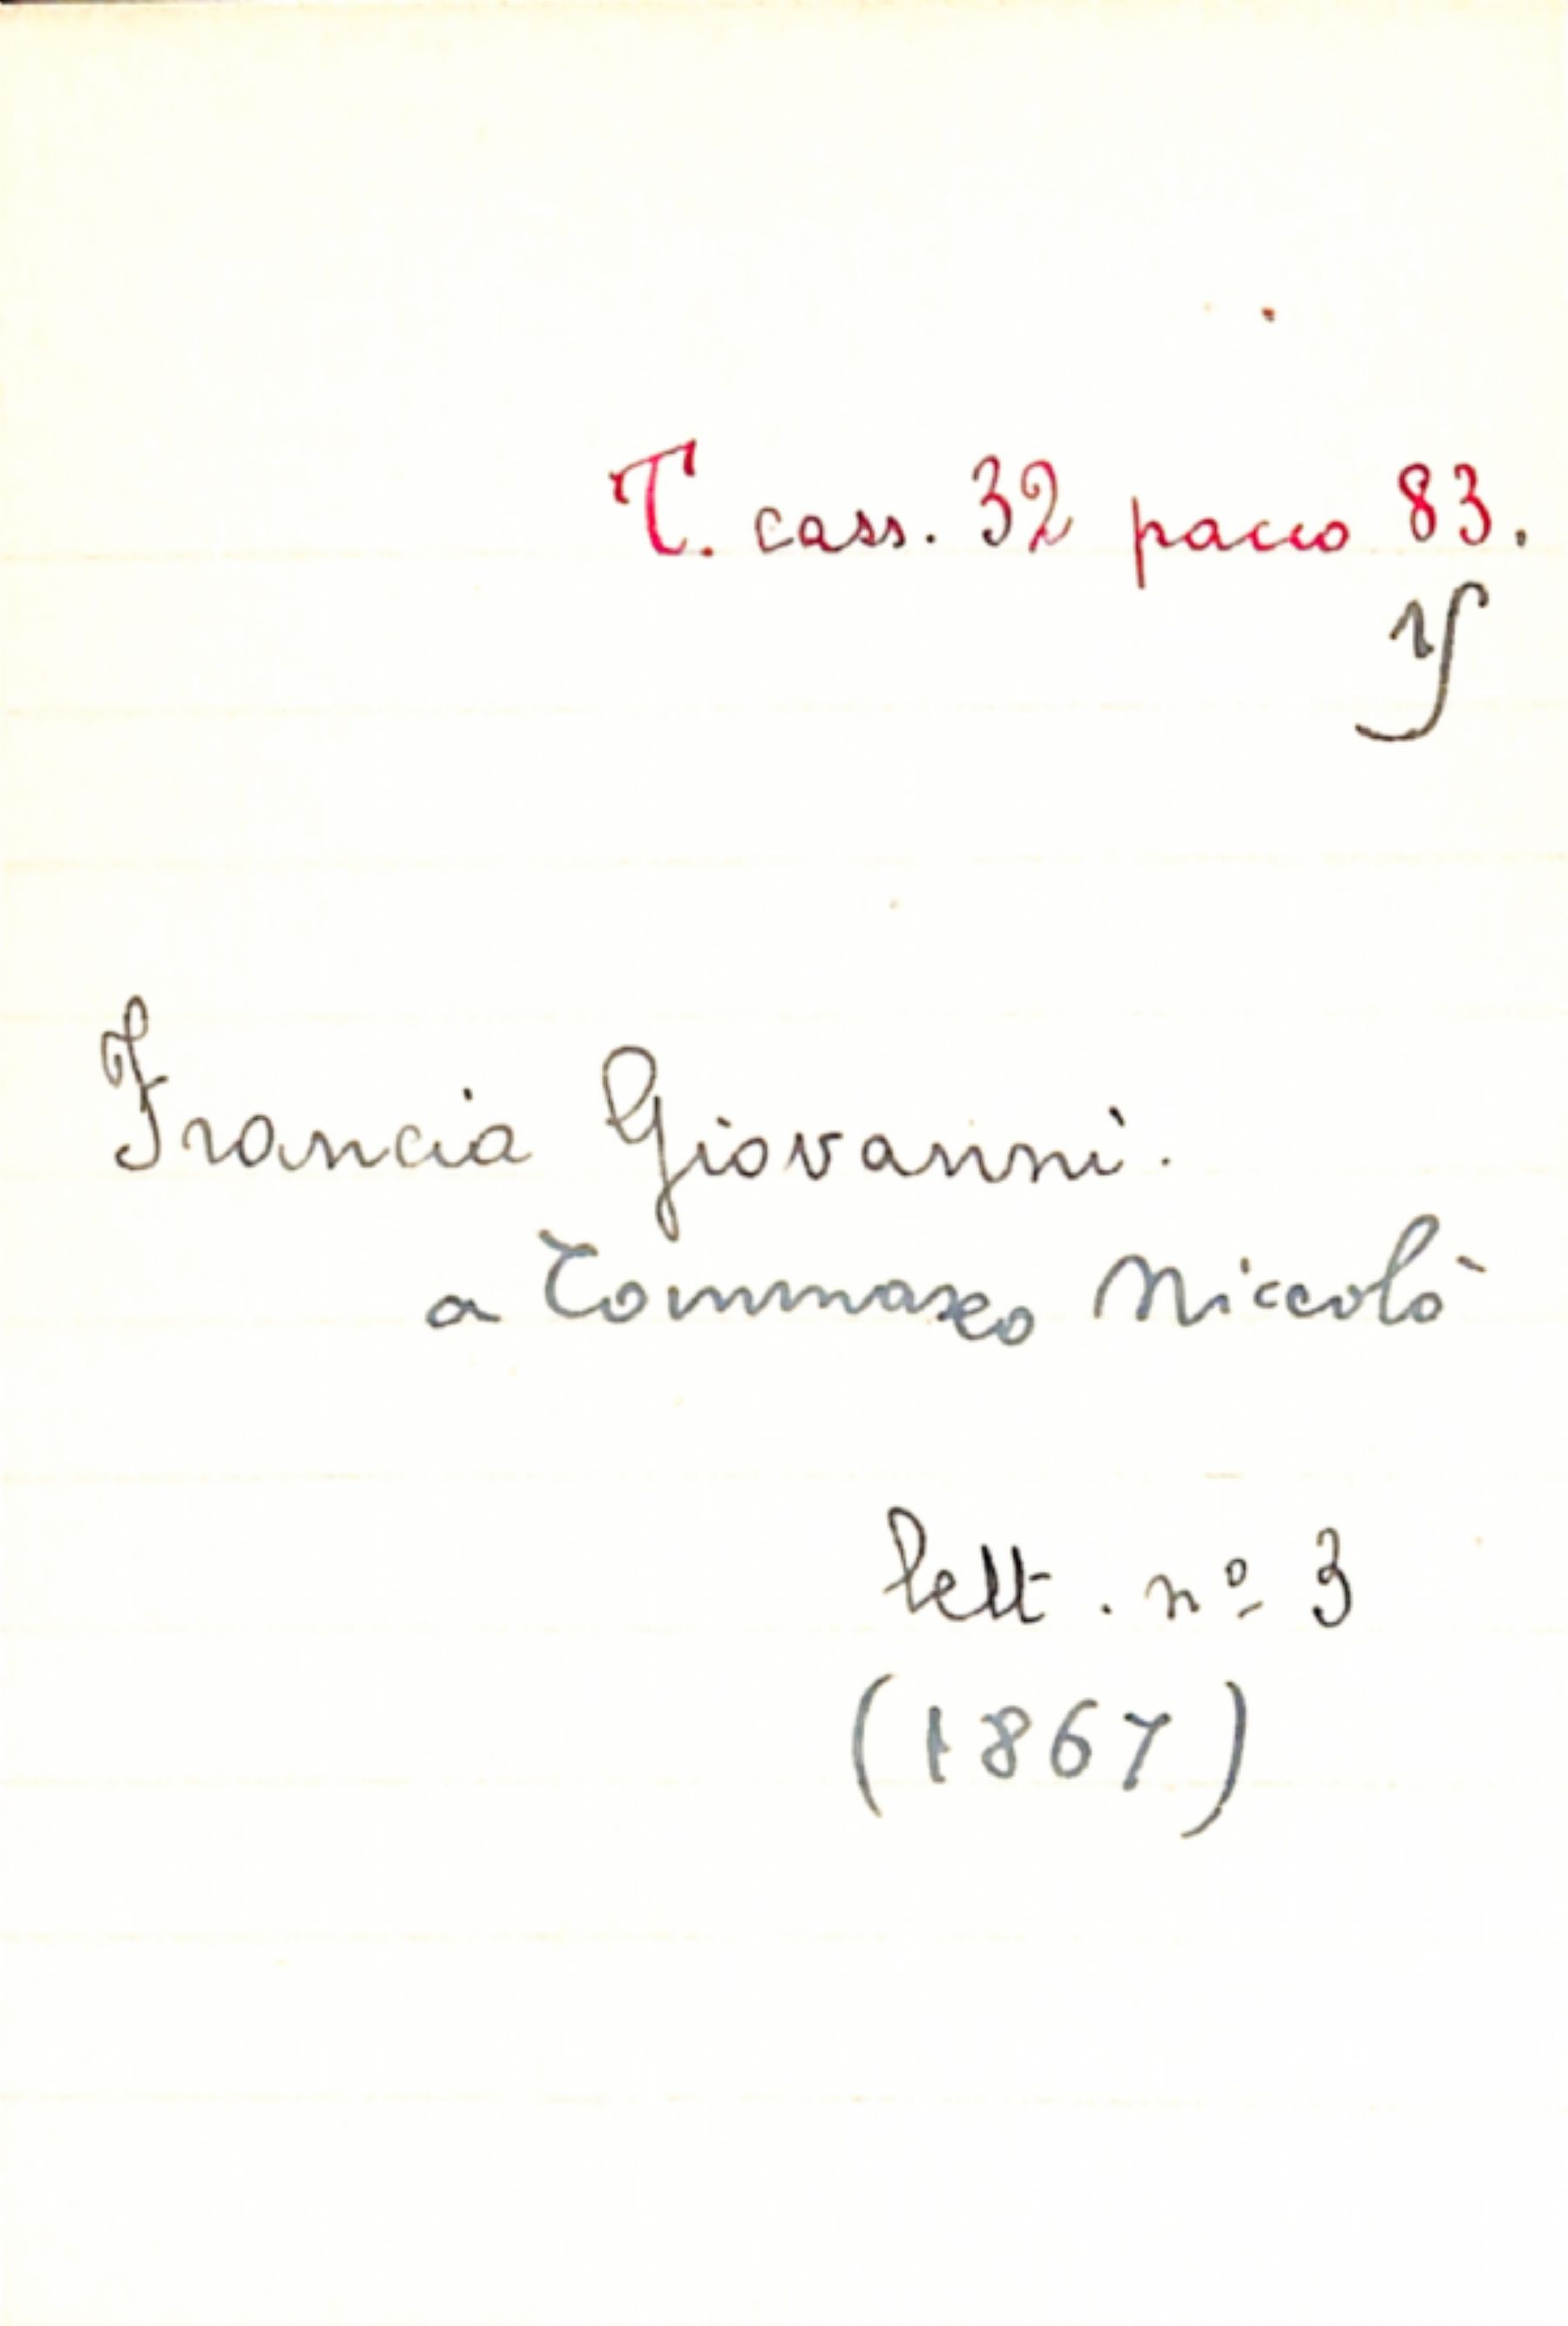 T. cass. 32 pacco 83.
Francia Giovanni.
a Tommaseo Niccolò
lett. nº 3
(1867)